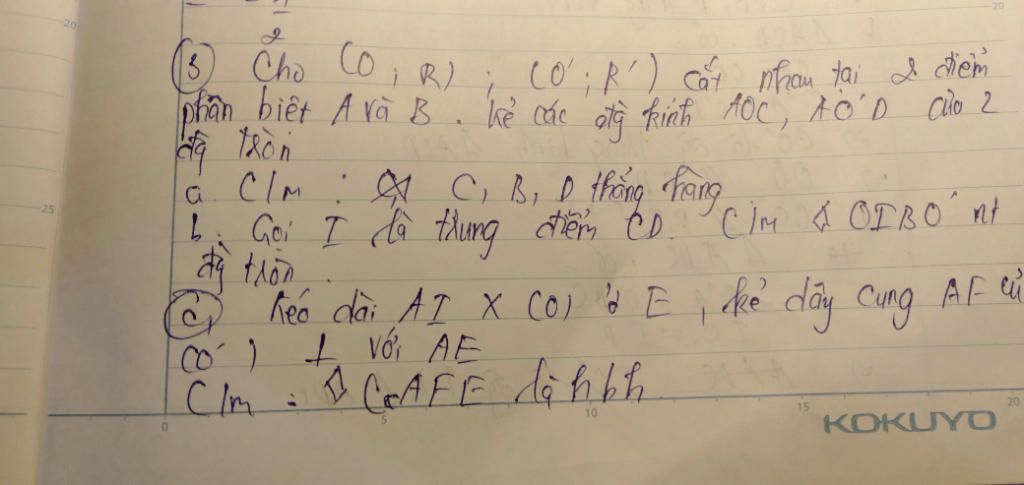 2
③ Cho (O; R); (O'; R') cắt nhau tại 2 điểm
phân biệt A và B. kẻ các đg kính AOC, AO'D của 2
đg tròn
a. C/m : C, B, D thẳng hàng
b. Gọi I là trung điểm CD. C/m OIBO' nt
đg tròn.
c, kéo dài AI X (O) ở E, kẻ dây cung AF củ
(O') ⊥ với AE
C/m : CAFE là hbh.
KOKUYO
20
25
0 5 10 15 20
20